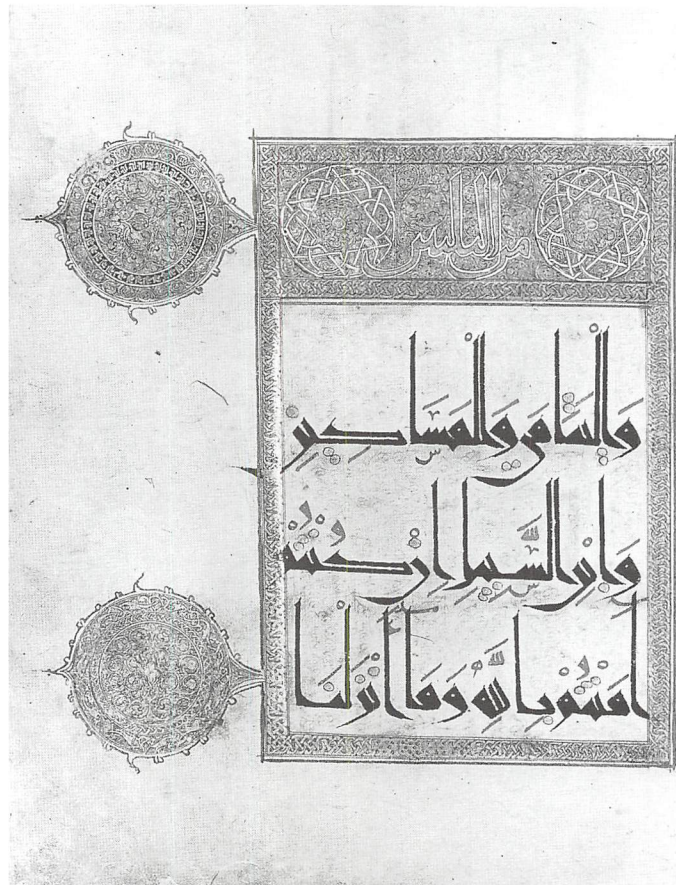 من الثلاثين
وَالْيَتَامَى وَالْمَسَاكِينِ
وَابْنِ السَّبِيلِ إِنْ كُنْتُمْ
آمَنْتُمْ بِاللَّهِ وَمَا أَنْزَلْنَا